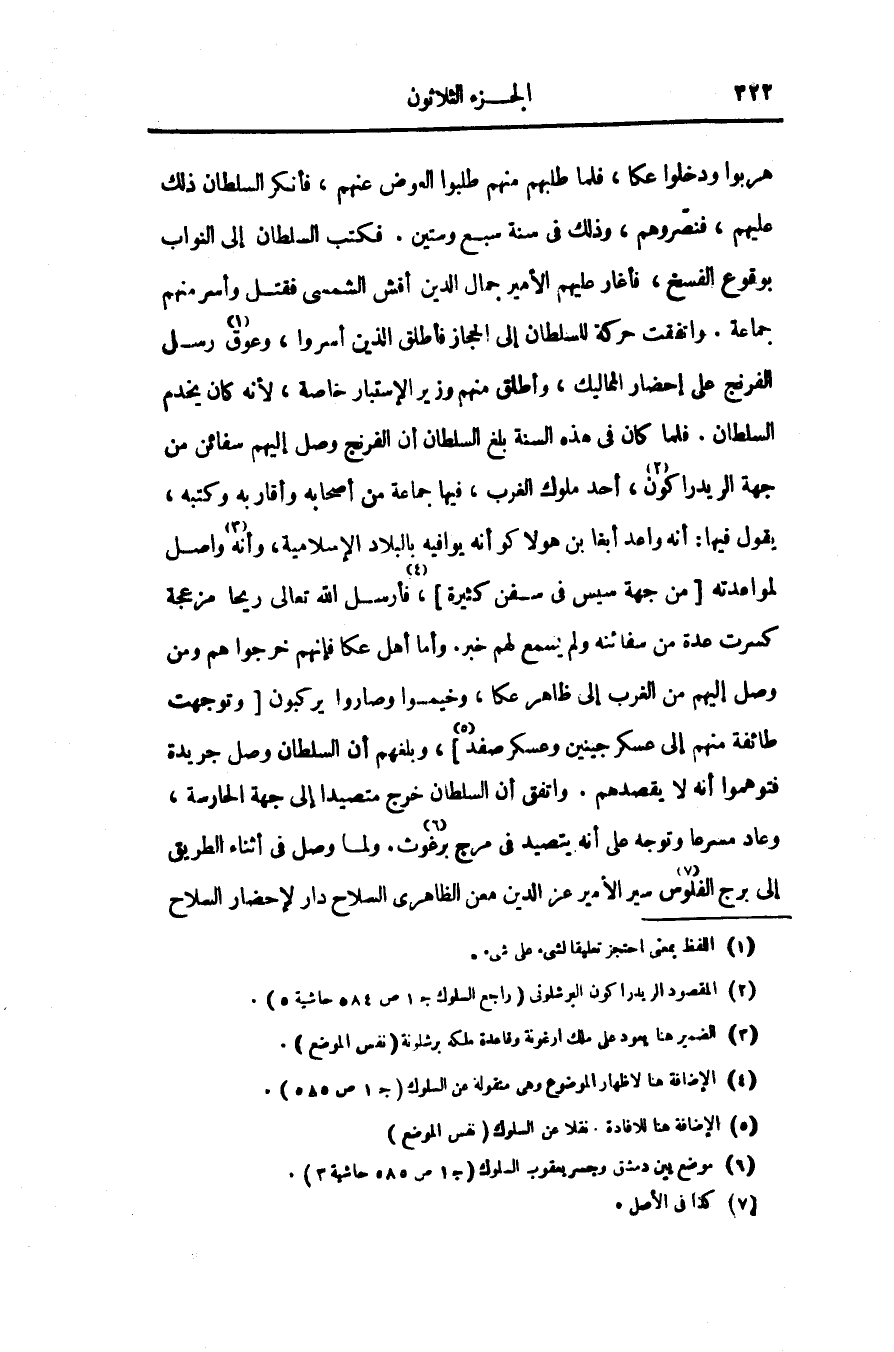 ٣٢٢ الجزء الثلاثون
هربوا ودخلوا عكا ، فلما طلبهم منهم طلبوا العوض عنهم ، فأنكر السلطان ذلك
عليهم ، فنصّروهم ، وذلك فى سنة سبع وستين . فكتب السلطان إلى النواب
بوقوع الفسخ ، فأغار عليهم الأمير جمال الدين أقش الشمسى فقتل وأسر منهم
جماعة . واتفقت حركة للسلطان إلى الحجاز فأطلق الذين أسروا ، وعوّق (١) رسل
الفرنج على إحضار المماليك ، وأطلق منهم وزير الإستبار خاصة ، لأنه كان يخدم
السلطان . فلما كان فى هذه السنة بلغ السلطان أن الفرنج وصل إليهم سفائن من
جهة الريدراكون (٢) ، أحد ملوك الغرب ، فيها جماعة من أصحابه وأقاربه وكتبه ،
يقول فيها : أنه واعد أبغا بن هولاكو أنه يوافيه بالبلاد الإسلامية ، وأنه (٣) واصل
لمواعدته [ من جهة سيس فى سفن كثيرة ] (٤) ، فأرسل الله تعالى ريحا مزعجة
كسرت عدة من سفائنه ولم يسمع لهم خبر . وأما أهل عكا فإنهم خرجوا هم ومن
وصل إليهم من الغرب إلى ظاهر عكا ، وخيموا وصاروا يركبون [ وتوجهت
طائفة منهم إلى عسكر جينين وعسكر صفد (٥) ] ، وبلغهم أن السلطان وصل جريدة
فتوهموا أنه لا يقصدهم . واتفق أن السلطان خرج متصيدا إلى جهة الحارسة ،
وعاد مسرعا وتوجه على أنه يتصيد فى مرج برغوث (٦) . ولما وصل فى أثناء الطريق
إلى برج الفلوس (٧) سير الأمير عز الدين معن الظاهرى السلاح دار لإحضار السلاح
(١) اللفظ بمعنى احتجز تعليقا لشىء على شىء .
(٢) المقصود الريدراكون البرشلونى ( راجع السلوك جـ ١ ص ٥٨٤ حاشية ٥ ) .
(٣) الضمير هنا يعود على ملك ارغونة وقاعدة ملكه برشلونة ( نفس الموضع ) .
(٤) الإضافة هنا لاظهار الموضوع وهى منقولة عن السلوك ( جـ ١ ص ٥٨٥ ) .
(٥) الإضافة هنا للافادة . نقلا عن السلوك ( نفس الموضع )
(٦) موضع بين دمشق وجسر يعقوب السلوك ( جـ ١ ص ٥٨٥ حاشية ٣ ) .
(٧) كذا فى الأصل .